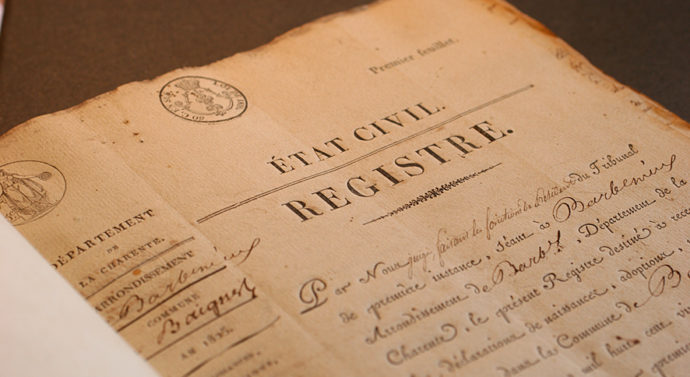 Premier feuillet.
ÉTAT CIVIL.
REGISTRE.
DÉPARTEMENT
DE
LA CHARENTE.
ARRONDISSEMENT
Barbezieux
COMMUNE
AN 182
Par Nous juge faisant les fonctions de président du Tribunal
de première instance, séant à Barbezieux
Arrondissement de Barbx, Département de la
Charente, le présent Registre destiné à rece
déclarations de naissance, adoptions,
dans la Commune de B
mil huit cent vi
premier